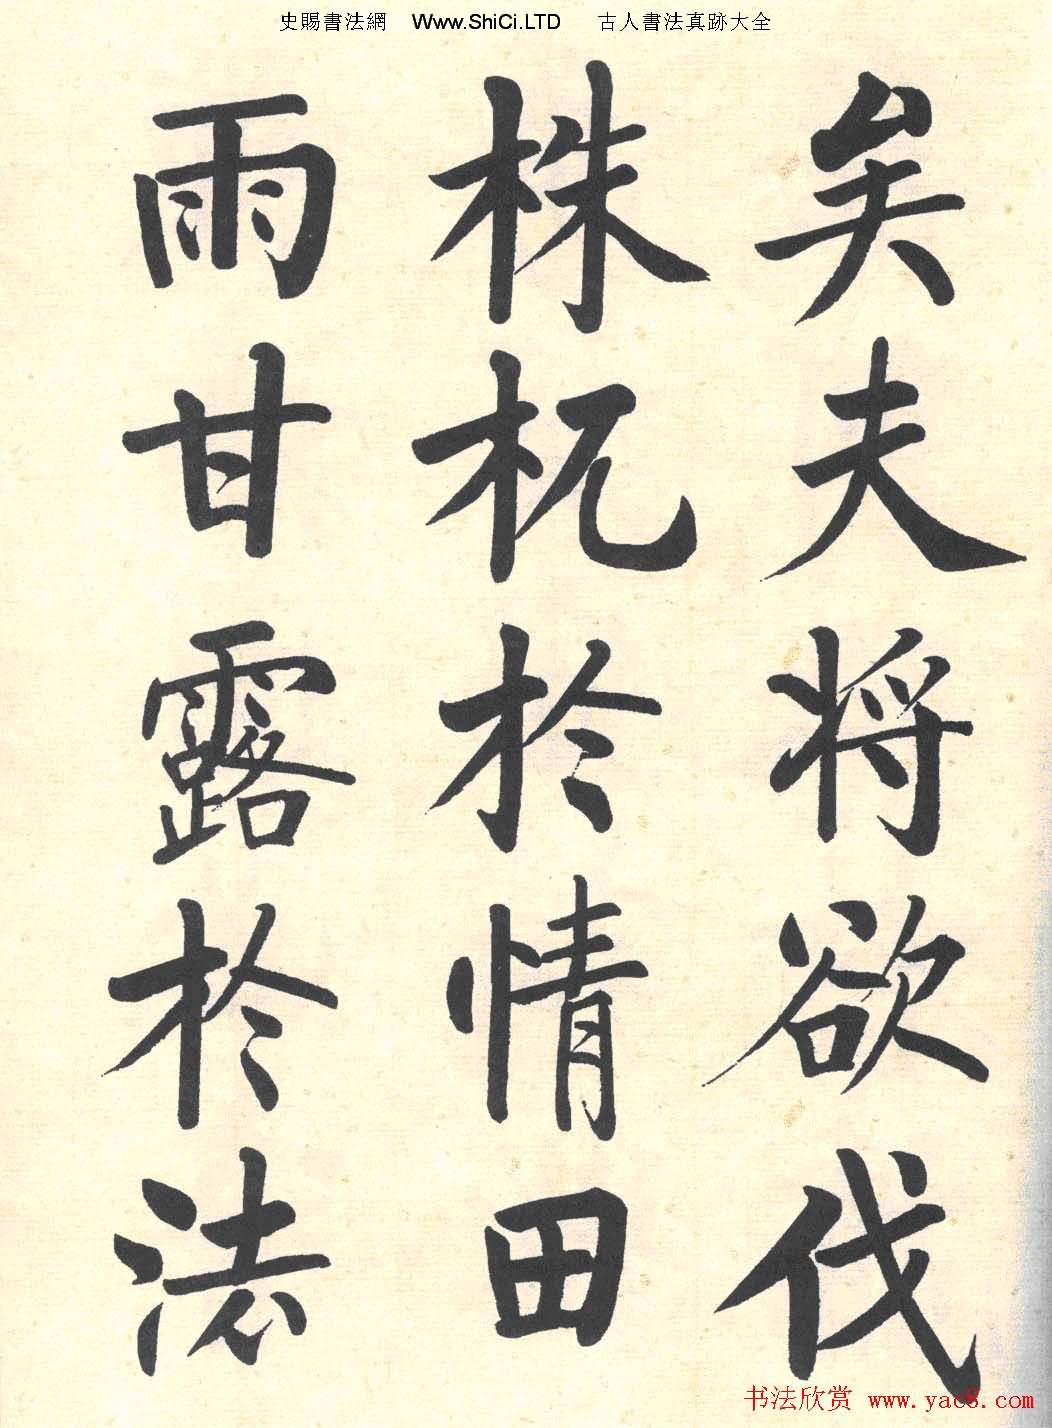 史賜書法網 Www.ShiCi.LTD 古人書法真跡大全
矣夫将欲伐
株杌於情田
雨甘露於法
书法欣赏 www.yac8.com